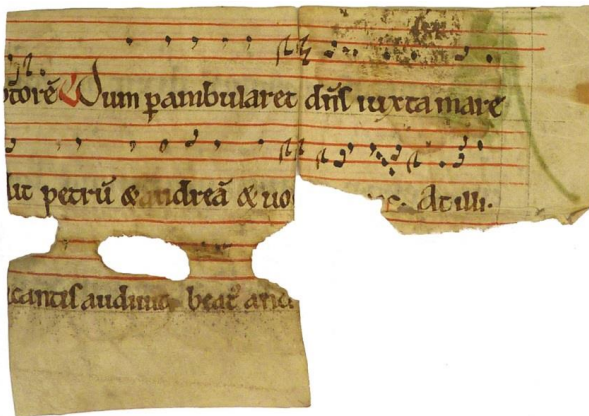 ptorē Dum pambularet dn̄s iuxta mare
petrū & andreā & uo Atilli.
cantis audiunt beat and